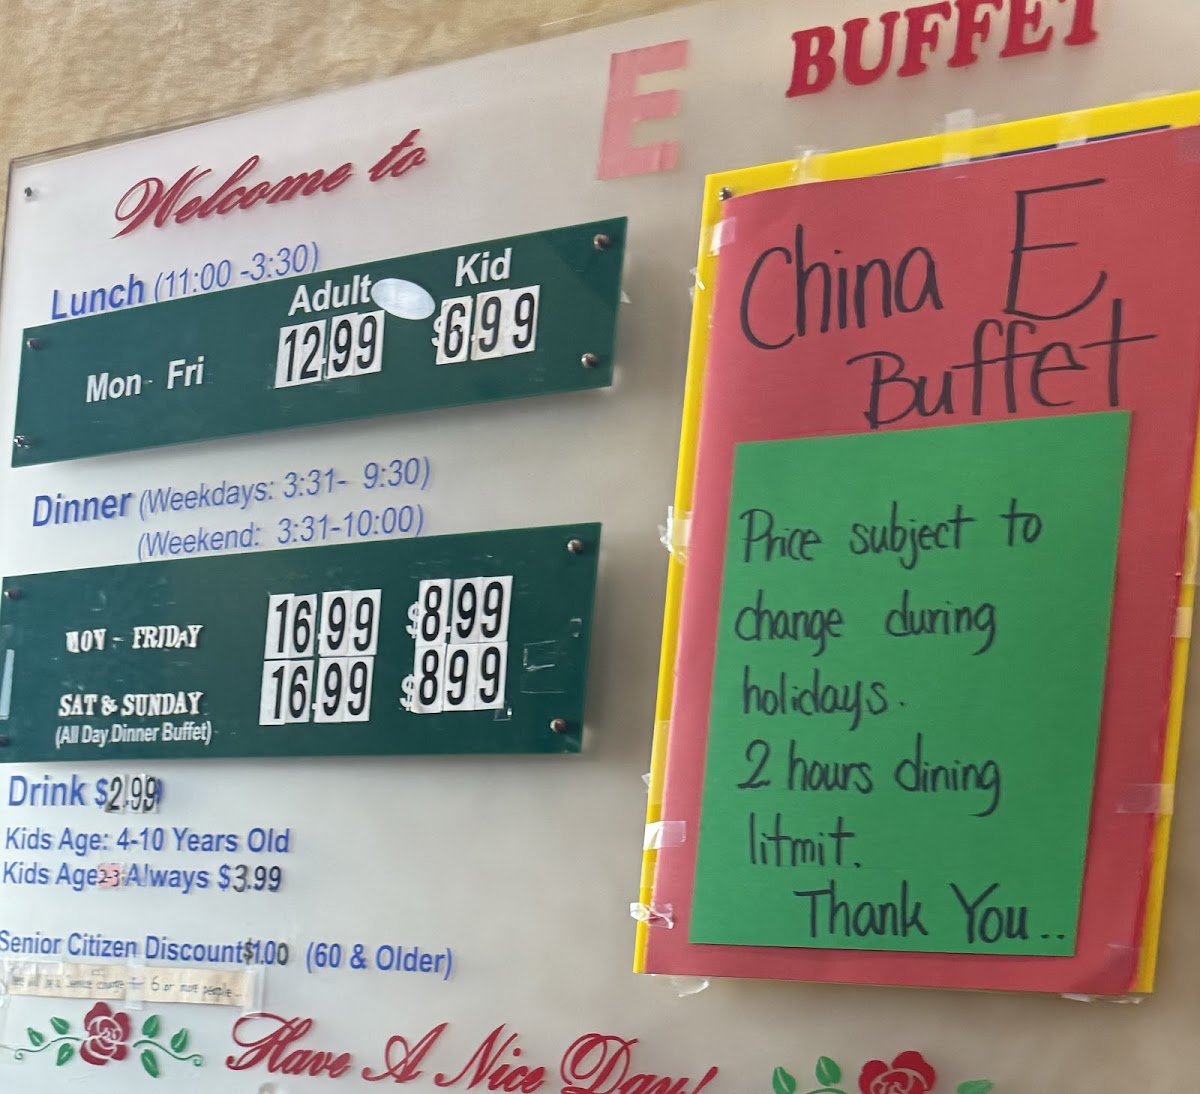 E BUFFET
Welcome to
Lunch (11:00 -3:30)
Adult Kid
Mon - Fri 12.99 $6.99
Dinner (Weekdays: 3:31- 9:30)
(Weekend: 3:31-10:00)
MON - FRIDAY 16.99 $8.99
SAT & SUNDAY 16.99 $899
(All Day Dinner Buffet)
Drink $2.99
Kids Age: 4-10 Years Old
Kids Age 2-3 Always $3.99
Senior Citizen Discount $1.00 (60 & Older)
service charge for 6 or more people..
Have A Nice Day!
China E
Buffet
Price subject to
change during
holidays.
2 hours dining
litmit.
Thank You..